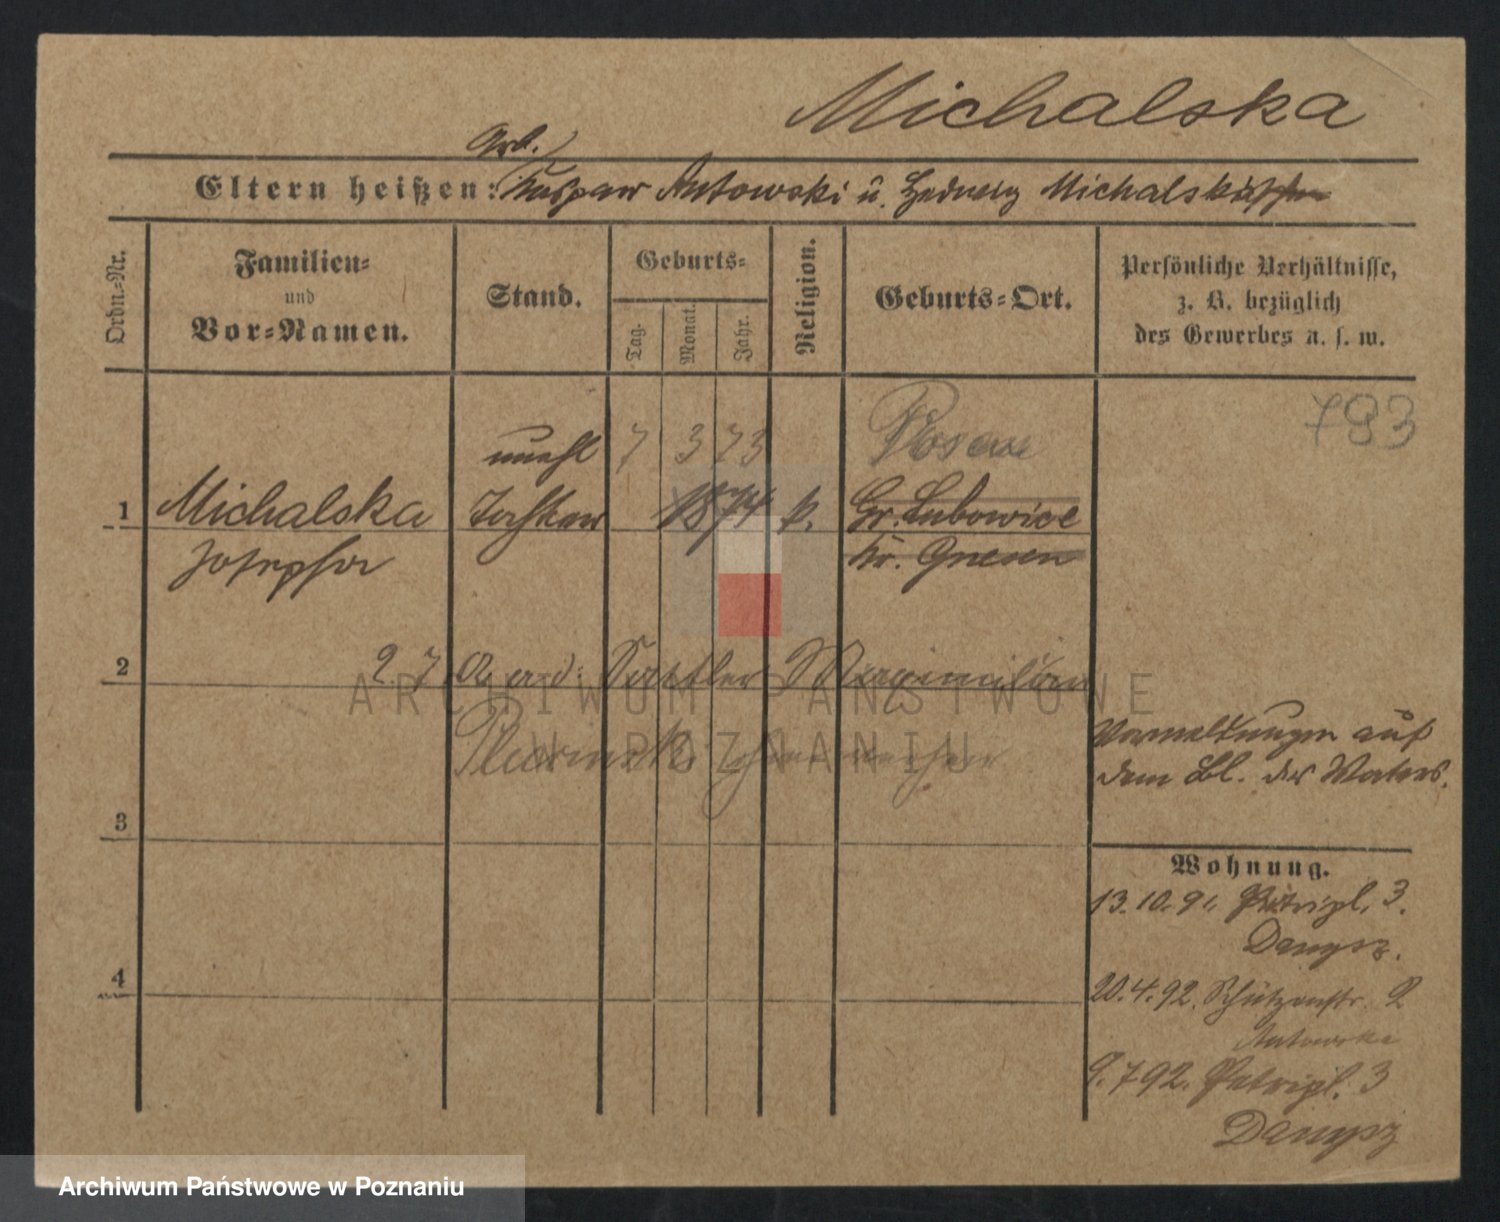 Michalska
Arb.
Eltern heißen: Kaspar Antowski u. Hedwig Michalska
Ordn.-Nr.
Familien-
und
Vor-Namen.
Stand.
Geburts-
Tag.
Monat.
Jahr.
Religion.
Geburts-Ort.
Persönliche Verhältnisse,
z. B. bezüglich
des Gewerbes u. s. w.
793
unehl 7 3 73 Posen
1 Michalska Tochter 1874 k. Gr. Lubowice
Josepha Kr. Gnesen
2 27 Sattler Maximilian
ARCHIWUM PAŃSTWOWE
W POZNANIU
Vermerkungen auf
dem Bl. des Vaters.
3
Wohnung.
13.10.91. Petripl. 3.
Danysz.
4
20.4.92. Schützenstr. 2
Antowska
9.7 92. Petripl. 3
Danysz
Archiwum Państwowe w Poznaniu